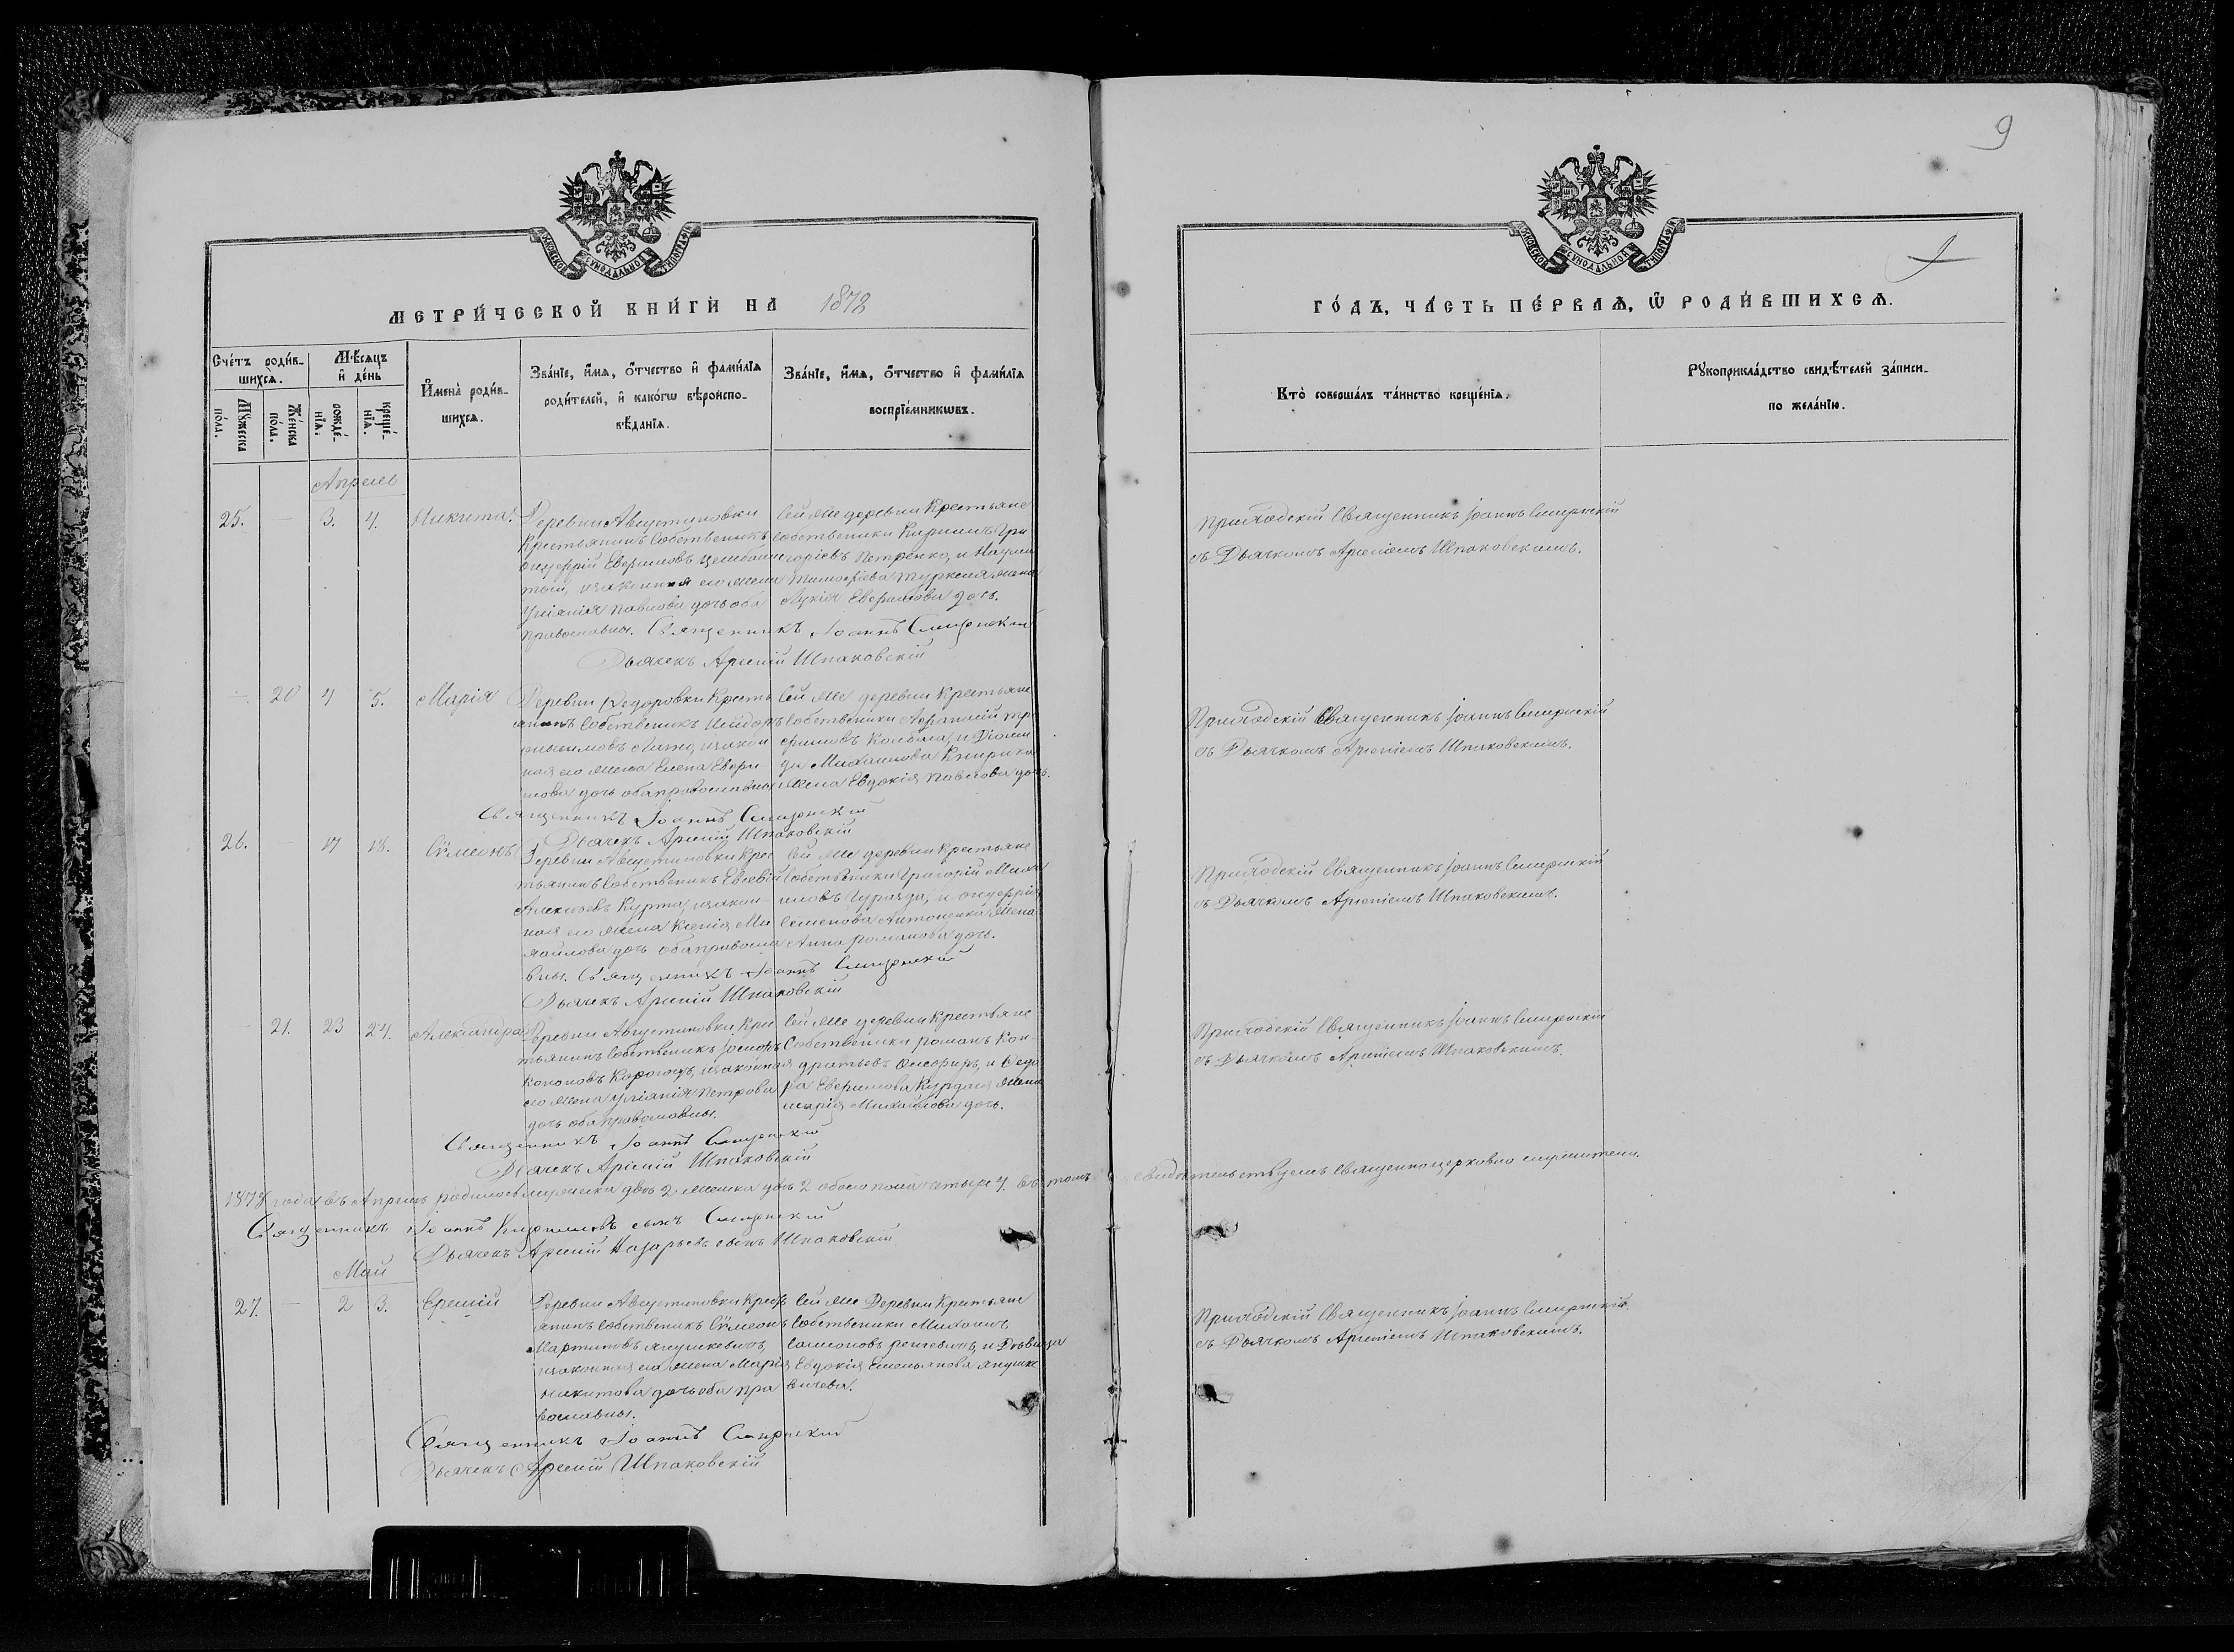 9
СѴНОДАЛЬНОЙ ТИПОГРАФІИ
МЕТРИ́ЧЕСКОЙ КНИ́ГИ НА 1872
ГО́ДЪ, ЧА́СТЬ ПЕ́РВАѦ, Ѿ РОДИ́ВШИХСѦ.
Сче́тъ роди́в-
шихсѧ.
Мꙋ́жеска
по́ла.
Же́нска
по́ла.
Мѣ́сѧцъ
и де́нь
рожде́-
нїѧ.
креще́-
нїѧ.
И҆мена̀ роди́в-
шихсѧ.
Зва́нїе, и҆́мѧ, ѻ҆́тчество и҆ фами́лїѧ
роди́телей, и҆ како́гѡ вѣроиспо-
вѣ́данїѧ.
Зва́нїе, и҆́мѧ, ѻ҆́тчество и҆ фами́лїѧ
воспрїе́мникѡвъ.
Кто̀ соверша́лъ та́инство креще́нїѧ.
Рꙋкоприкла́дство свидѣ́телей за́писи
по жела́нїю.
Апрель
25. — 3. 4. Никита.
Деревни Августиновки
Крестьянинъ Собственикъ
законная его жена
Улiянiя Павлова дочь оба
православны. Священникъ Іоаннъ Смирнскій
Дьячекъ Арсеній Шпаковскій
Сей же деревни Крестьяне
собственики Кирилъ Гри
горіевъ Петренко, и Наума
Тимофіева жена
Лукія дочь.
Приходскій Священникъ Іоаннъ Смирнскій
съ Дьячкомъ Арсеніемъ Шпаковскимъ.
— 20 4 5. Марія
Деревни Федоровки Кресть
янинъ Собственикъ
закон
ная его жена Елена
дочь оба православны
Священникъ Іоаннъ Смирнскій
Дьячекъ Арсеній Шпаковскій
Сей же деревни Крестьяне
Собственики
Михаилова
жена Евдокія Павлова дочь.
Приходскій Священникъ Іоаннъ Смирнскій
съ Дьячкомъ Арсеніемъ Шпаковскимъ.
26. — 17 18. Сѵмеонъ
Деревни Августиновки Крес
тьянинъ Собственикъ Евсевій
Алексѣевъ Курта, закон
ная его жена Ксенія Ми
хайлова дочь оба правосла
вны. Священникъ Іоаннъ Смирнскій
Дьячекъ Арсеній Шпаковскій
Сей же деревни Крестьяне
Собственики Григорій Миха
иловъ и онуфрія
Семенова Антоненка жена
Анна романова дочь.
Приходскій Священникъ Іоаннъ Смирнскій
съ Дьячкомъ Арсеніемъ Шпаковскимъ.
— 21. 23 24. Александра
Деревни Августиновки Крес
тьянинъ Собственикъ
Кононовъ Корогодъ, законная
его жена Улiянiя Петрова
дочь оба православны.
Священникъ Іоаннъ Смирнскій
Дьячекъ Арсеній Шпаковскій
Сей же деревни Крестьяне
Собственики романъ Кон
дратьевъ и Федо
ра жена
марія Михайлова дочь.
Приходскій Священникъ Іоаннъ Смирнскій
съ Дьячкомъ Арсеніемъ Шпаковскимъ.
года въ Апрелѣ родилось мужеска два 2 женска два 2 обоего пола четыре 4. въ томъ свидѣтельствуемъ священно церковно служители.
Священникъ Іоаннъ Кириловъ сынъ Смирнскій
Дьячекъ Арсеній Назарьевъ сынъ Шпаковскій
Май
27. — 2 3. Еремій
Деревни Августиновки Кресть
янинъ Собственикъ Сѵмеонъ
Мартиновъ Янушкевичъ,
законная его жена Марія
Никитова дочь оба пра
вославны.
Священникъ Іоаннъ Смирнскій
Дьячекъ Арсеній Шпаковскій
Сей же Деревни Крестьяне
Собственики Михаилъ
и Дѣвица
Евдокія Емельянова янушке
вичева.
Приходскій Священникъ Іоаннъ Смирнскій
съ Дьячкомъ Арсеніемъ Шпаковскимъ.